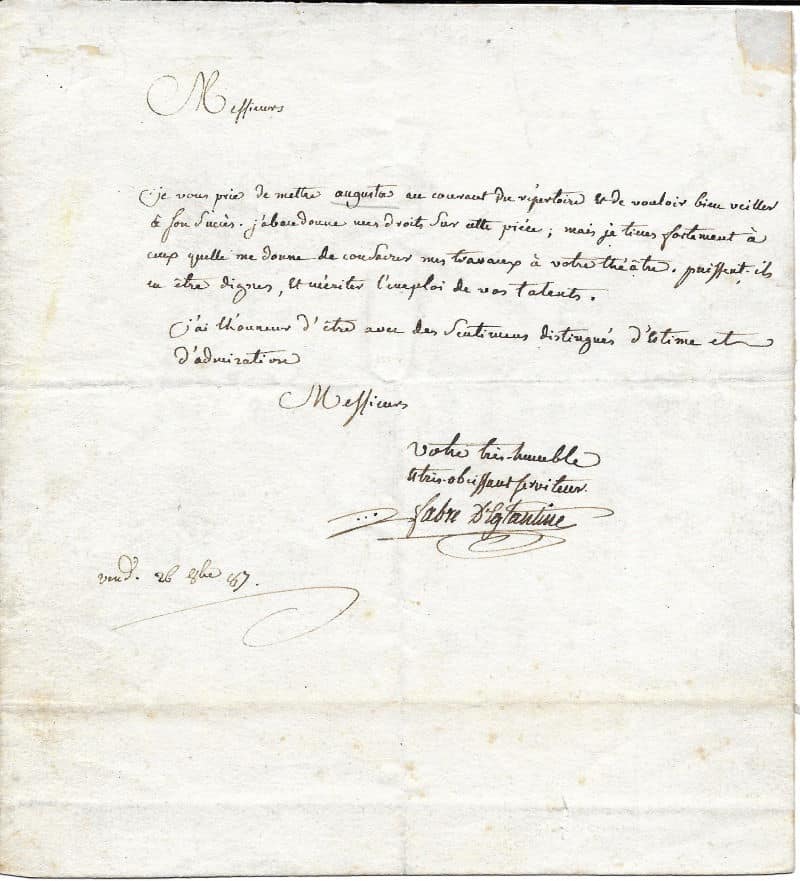 Messieurs
je vous prie de mettre augusta au courant du répertoire et de vouloir bien veiller
à son succès. j'abandonne mes droits sur cette pièce; mais je tiens fortement à
ceux quelle me donne de consacrer mes travaux à votre théâtre. puissent-ils
en être dignes, et mériter l'emploi de vos talents.
j'ai l'honneur d'être avec des sentimens distingués d'estime et
d'admiration
Messieurs
votre très-humble
et très-obéissant serviteur.
fabre D'Eglantine
vend. 26 8bre 87.